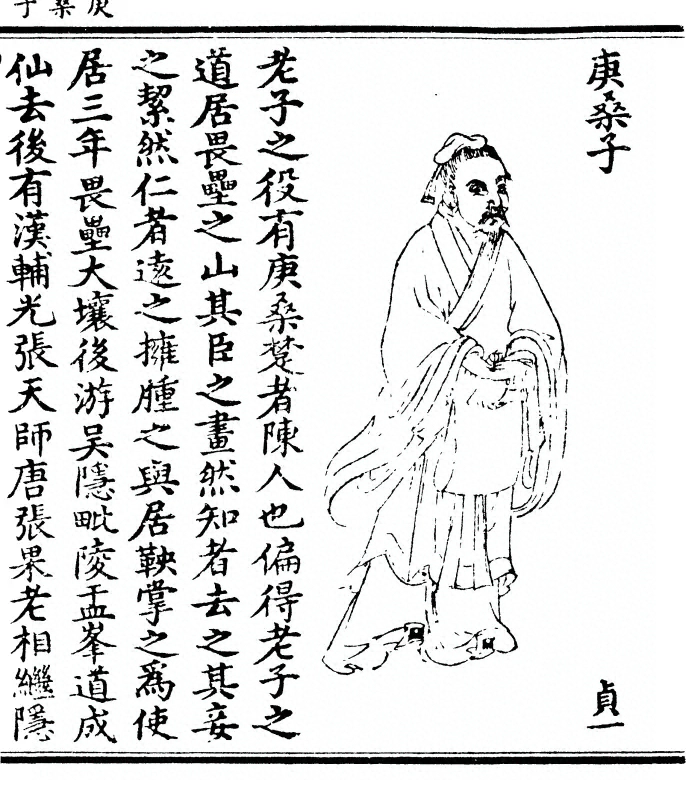 庚桑子
庚桑子
貞一
老子之役有庚桑楚者陳人也偏得老子之
道居畏壘之山其臣之畫然知者去之其妾
之絜然仁者遠之擁腫之與居鞅掌之爲使
居三年畏壘大壤後游吳隱毗陵盂峯道成
仙去後有漢輔光張天師唐張果老相繼隱